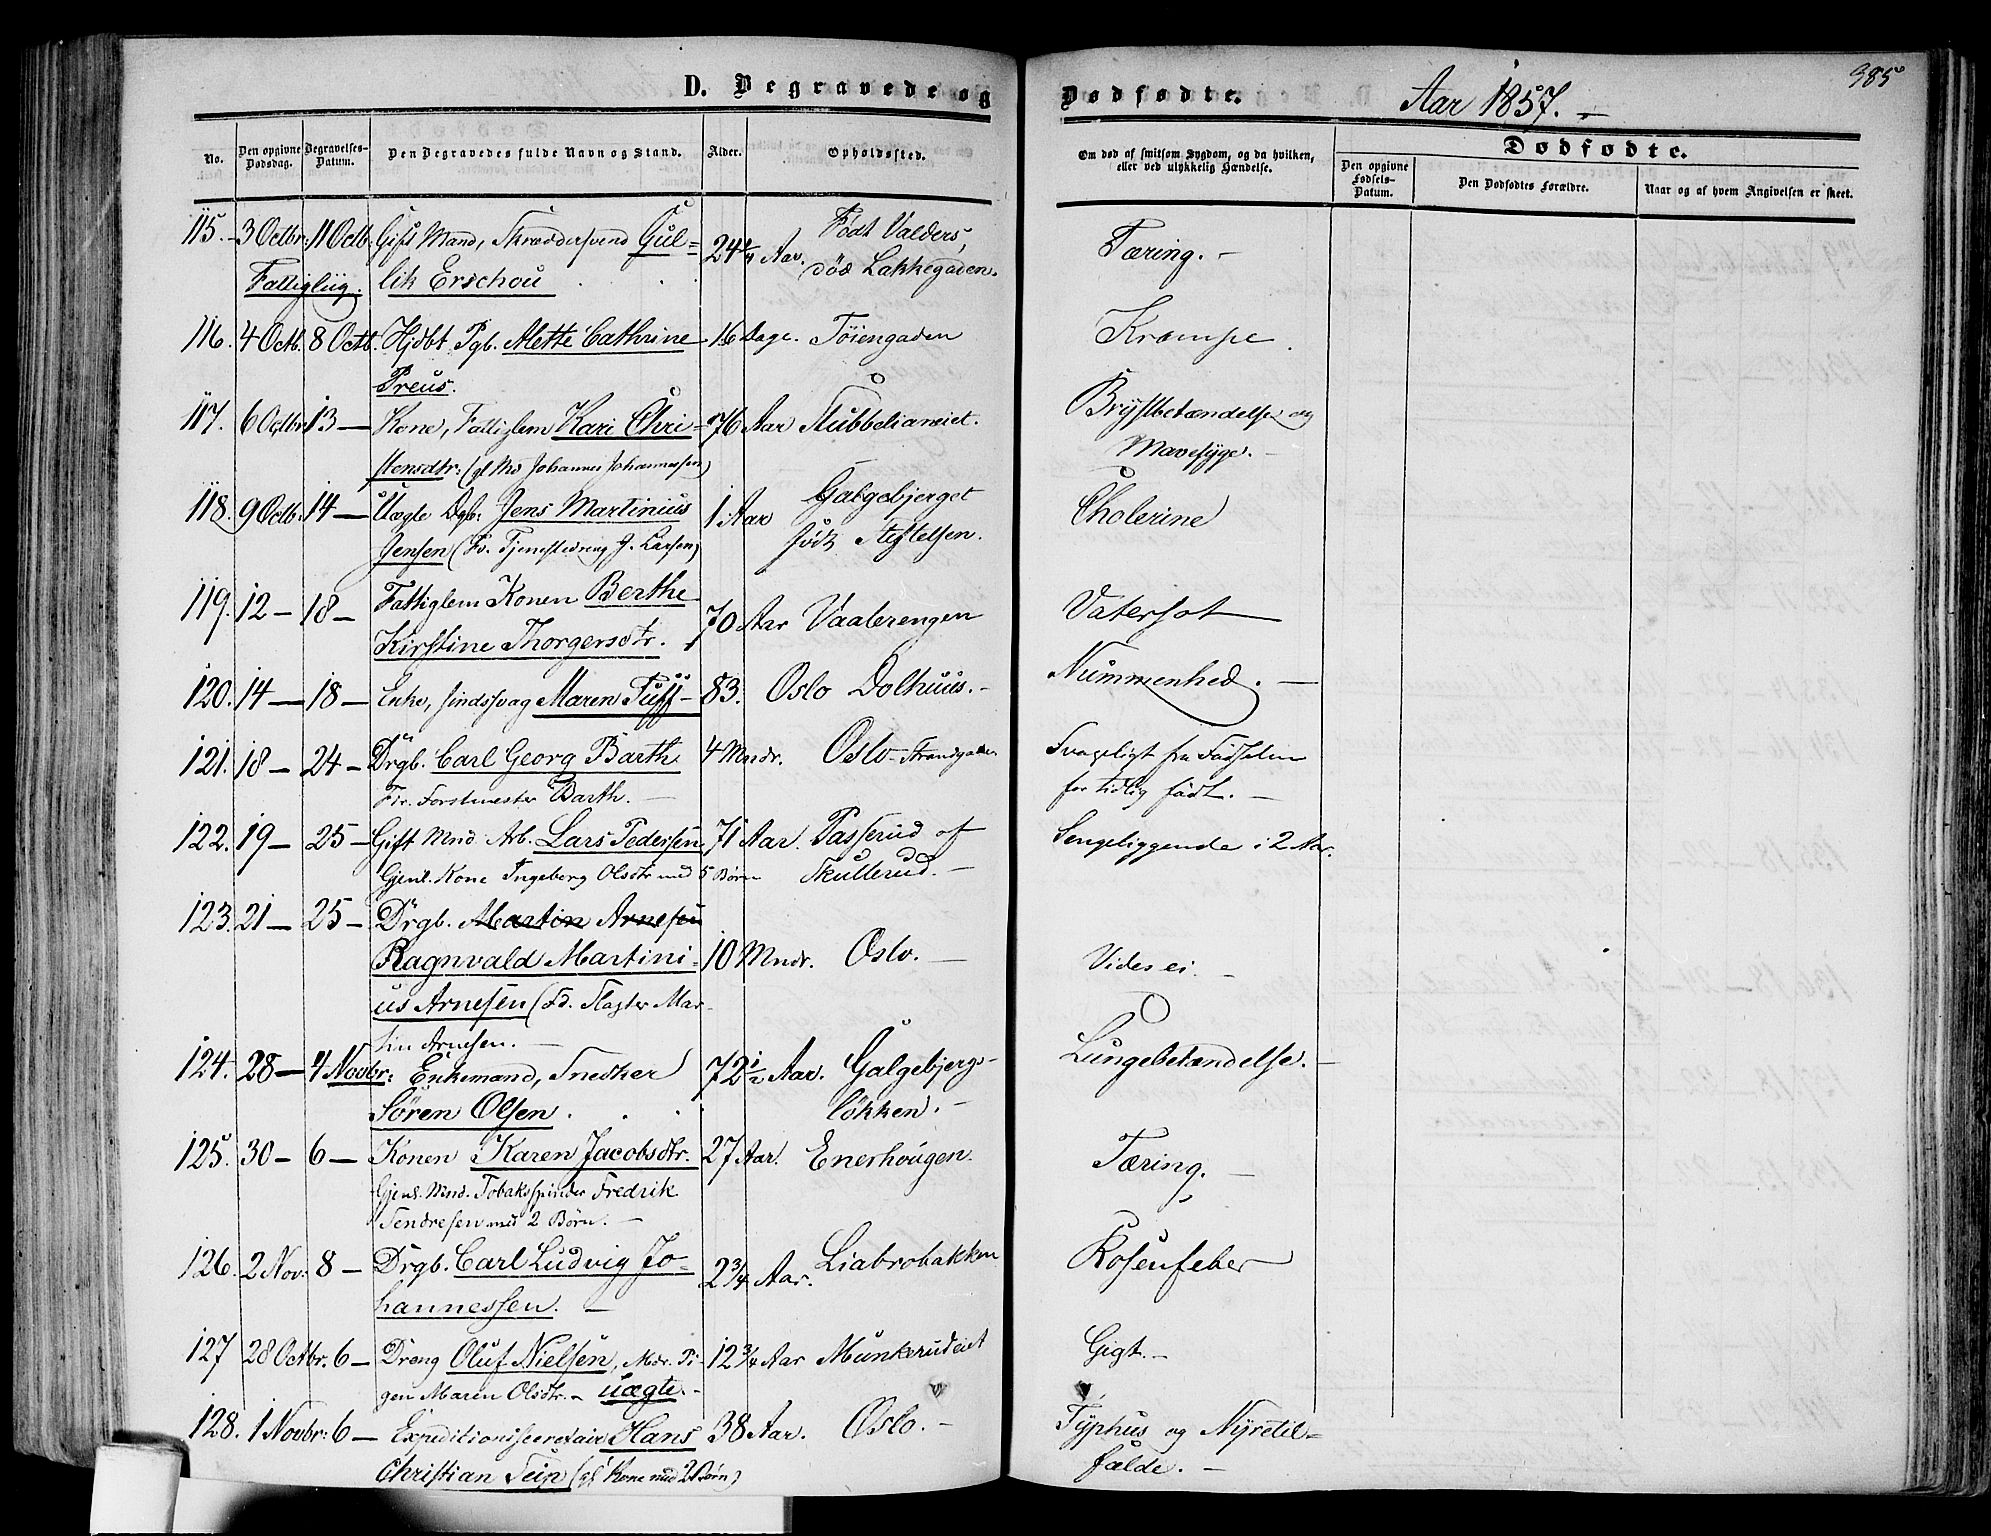 D. Begravede og Dødfødte. Aar 1857. 385
No. Den opgivne Dødsdag. Begravelses-Datum. Den Begravedes fulde Navn og Stand. Alder. Opholdssted. Om død af smitsom Sygdom, og da hvilken, eller ved ulykkelig Hændelse. Dødfødte. Den opgivne Fødsels-Datum. Den Dødfødtes Forældre. Naar og af hvem Angivelsen er skeet.
115. 3 Octbr: 11 Octb: Gift Mand, Skræddersvend Gul- 24 1/4 Aar. Født Valders, Tæring. -
Fattigliig. lik Erschou død Lakkegaden.
116. 4 Octb. 8 Octb. Hjdbt Pgb. Mette Cathrine 16 Dage. Tøiengaden Krampe.
Preus.
117. 6 Octbr 13 — Kone, Fattiglem Kari Chri- 76 Aar Stubbelianeiet. Brystbetændelse og
stensdtr: (gl Md Johannes Johannessen) Mavesyge. -
118. 9 Octb. 14 — Uægte Dgb: Jens Martinius 1 Aar Galgebjerget Cholerine
Jensen (Fd. Tjenestedreng J. Larsen) født Stiftelsen.
119. 12 — 18 — Fattiglem Konen Berthe 70 Aar Vaalerengen Vatersot
Kirstine Thorgersdtr.
120. 14 — 18 — Enke, sindssvag Maren Tuff- 83. Oslo Dolhuus. - Nummenhed. —
121. 18 — 24 — Drgb. Carl Georg Barth 4 Mndr. Oslo - Strandgaden Svageligt fra Fødselen
Fdr. Forstmester Barth. — for tidlig født. -
122. 19 — 25 — Gift Mnd. Arb. Lars Pedersen 71 Aar. Passerud af Sengeliggende i 2 Aar.
Gjenl. Kone Ingeborg Olsdtr med 5 Børn Skullerud. -
123. 21 — 25 — Drgb. Martin Arnesen
Ragnvald Martini- 10 Mndr. Oslo. — Vides ei. -
us Arnesen (Fd. Slagter Mar-
tin Arnesen. —
124. 28 — 4 Novbr: Enkemand, Snedker 72 1/2 Aar. Galgebjergs- Lungebetændelse. -
Søren Olsen. løkken. -
125. 30 — 6 — Konen Karen Jacobsdtr. 27 Aar. Enerhougen. Tæring. -
Gjenl. Mnd. Tobaksspinder Fredrik
Sendresen med 2 Børn. —
126. 2 Nov: 8 — Drgb. Carl Ludvig Jo- 2 3/4 Aar. Liabrobakken Rosenfeber
hannessen. —
127 28 Octbr. 6 — Dreng Oluf Nielsen, Mdr. Pi- 12 3/4 Aar Munkerudeiet Gigt. -
gen Maren Olsdtr. - uægte. -
128. 1 Novbr: 6 — Expeditionssecretair Hans 38 Aar. Oslo. - Typhus og Nyretil-
Christian Seip (gl Kone med 2 Børn) fælde. -